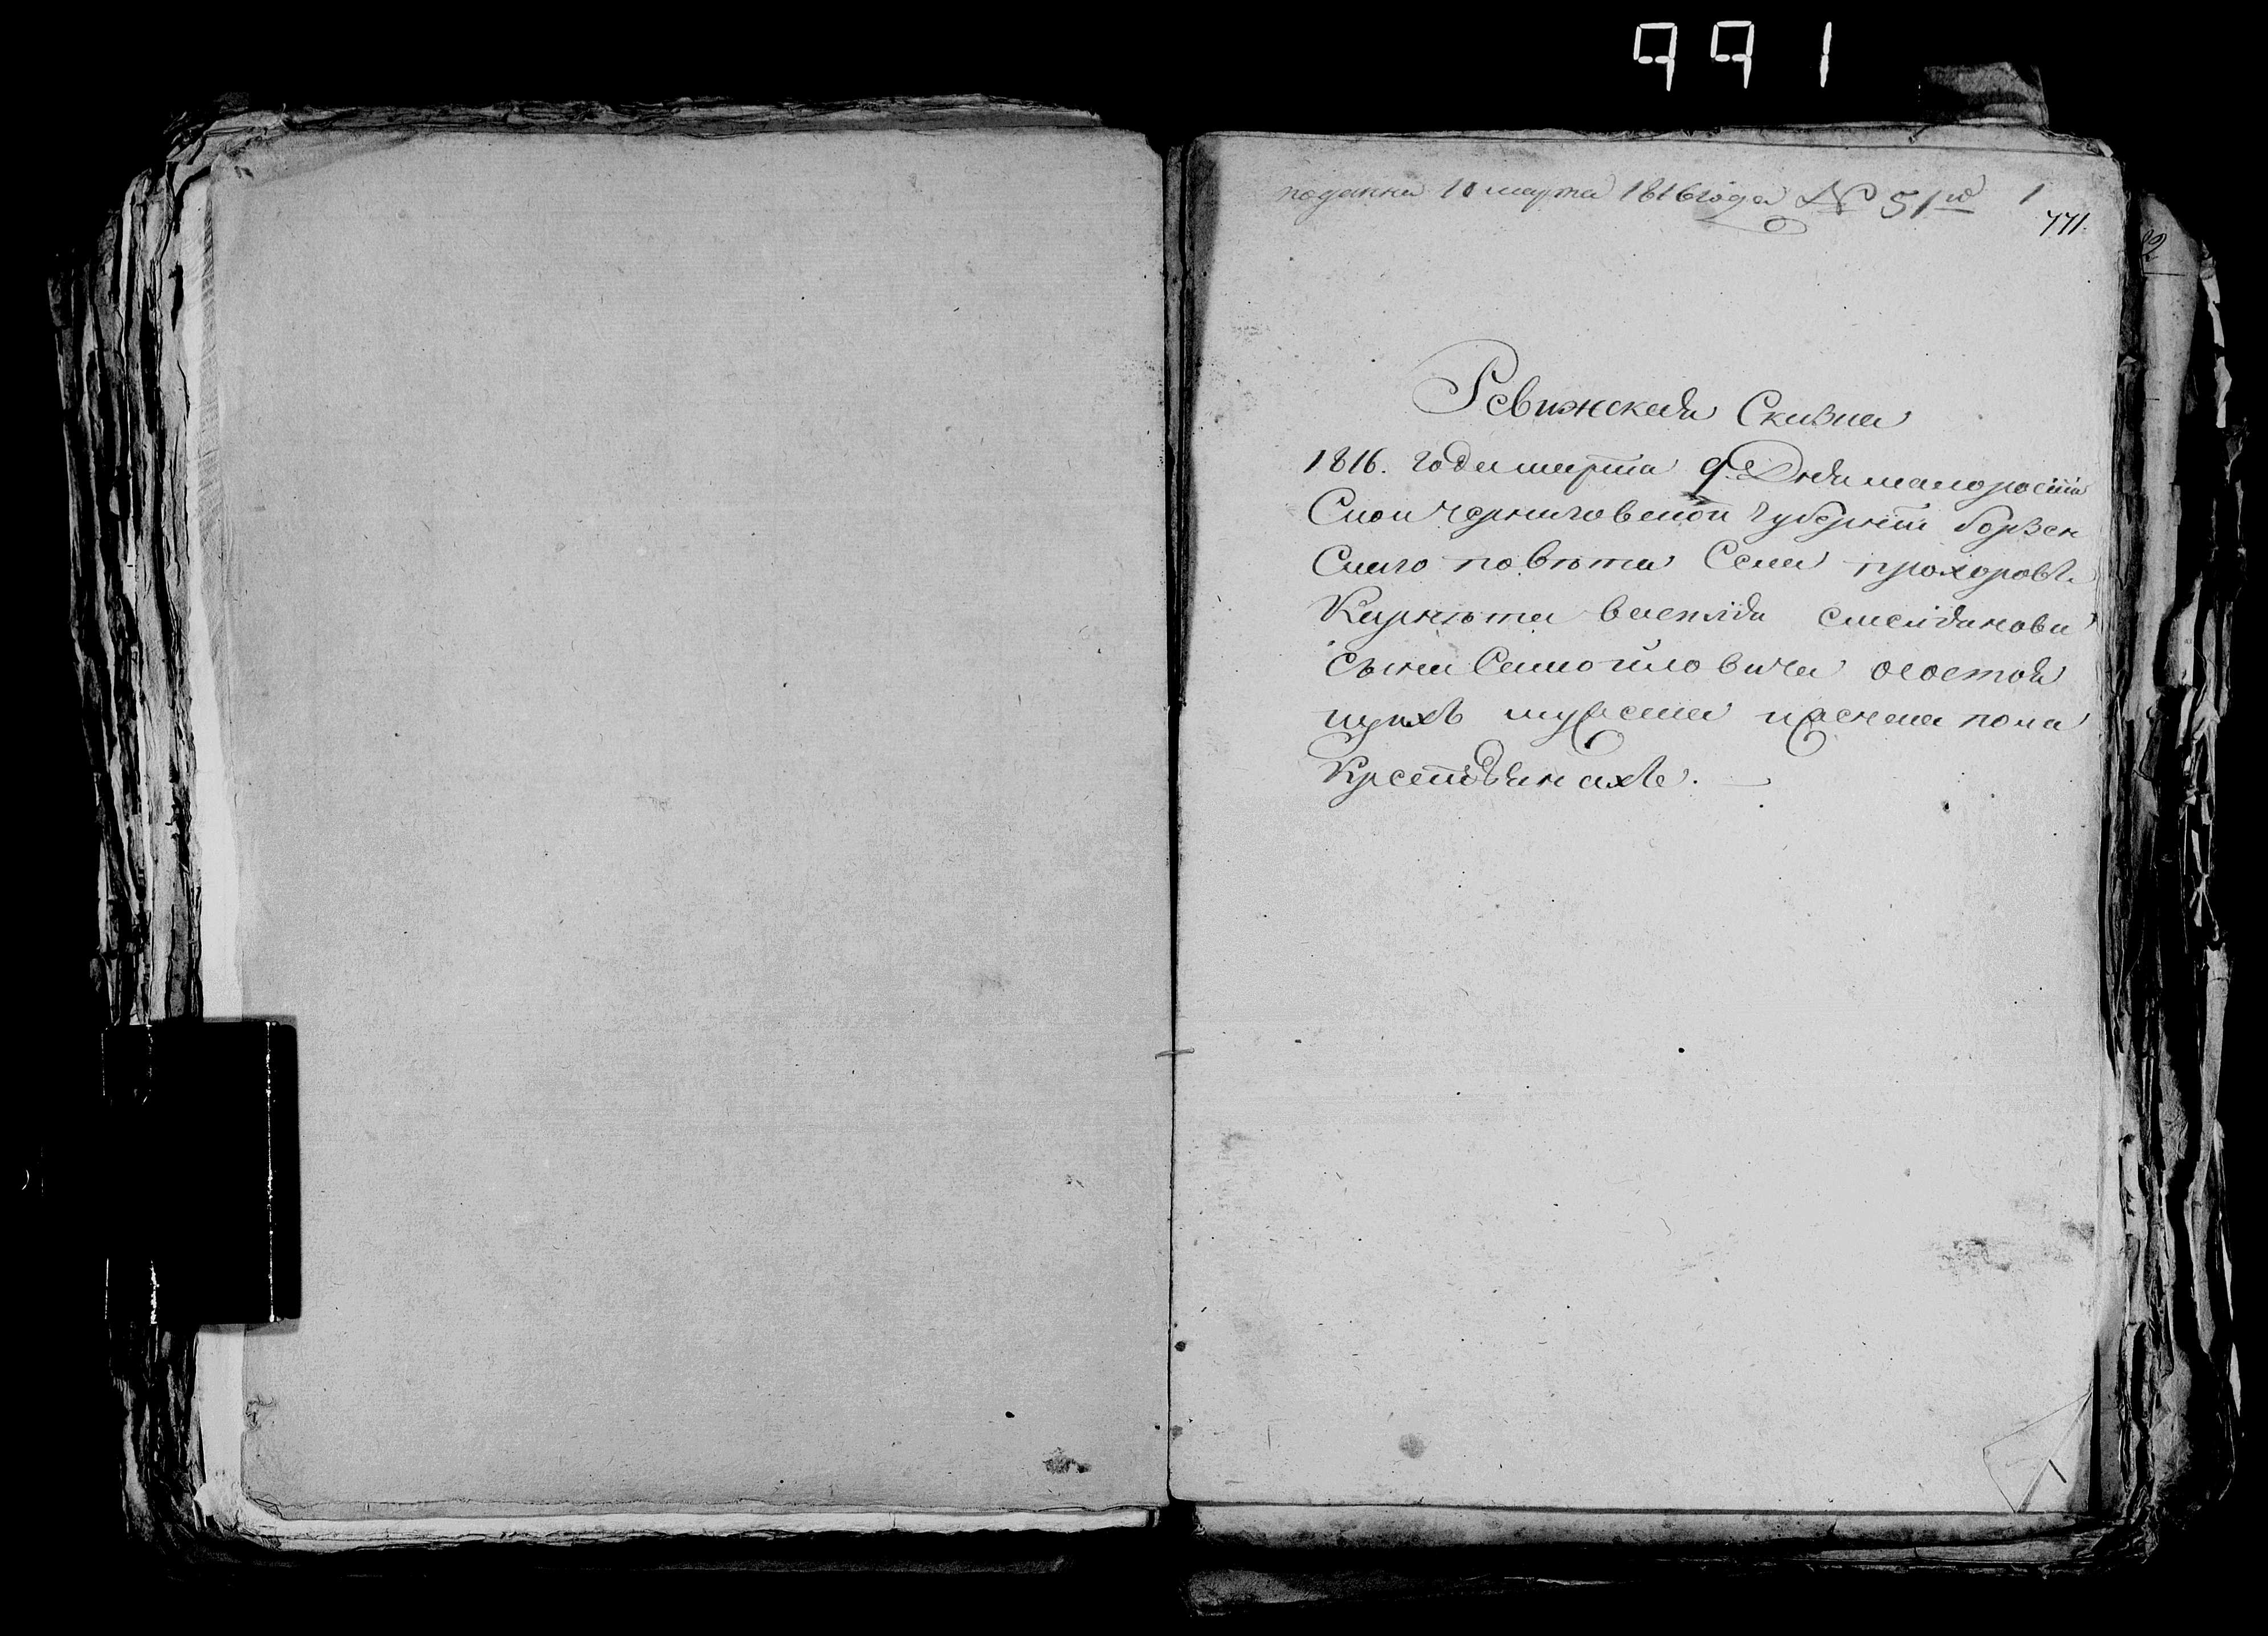 991
поданна 10 марта 1816 года № 51ю 1
771.
Ревижская Сказка
1816. года марта 9. Дня малоросiй
Скои черниговской Губернiи борзен
Скаго повѣта Села прохоровъ
Карнѣта василiя емелiянова
сына Самоиловича осостоя
щихъ мужеска и женска пола
Крестьянахъ.